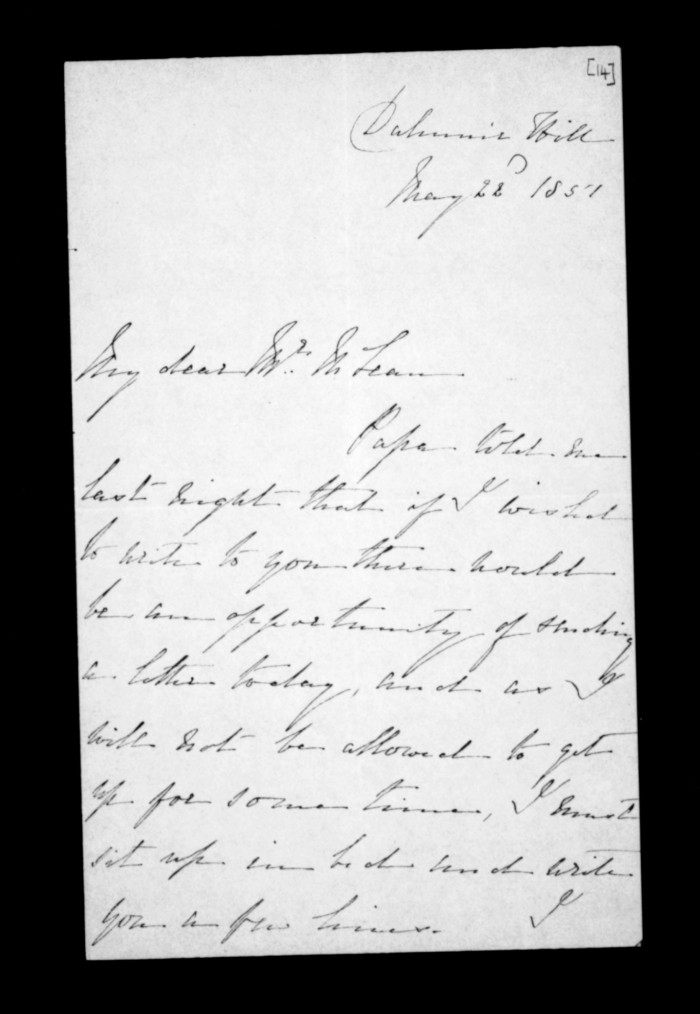 [14]
Dalmuir Hill
May 22d 1851
My dear Mrs. McLean
Papa told me
last night that if I wished
to write to you there would
be an opportunity of sending
a letter today, and as I
will not be allowed to get
up for some time, I must
sit up in bed and write
you a few lines. I